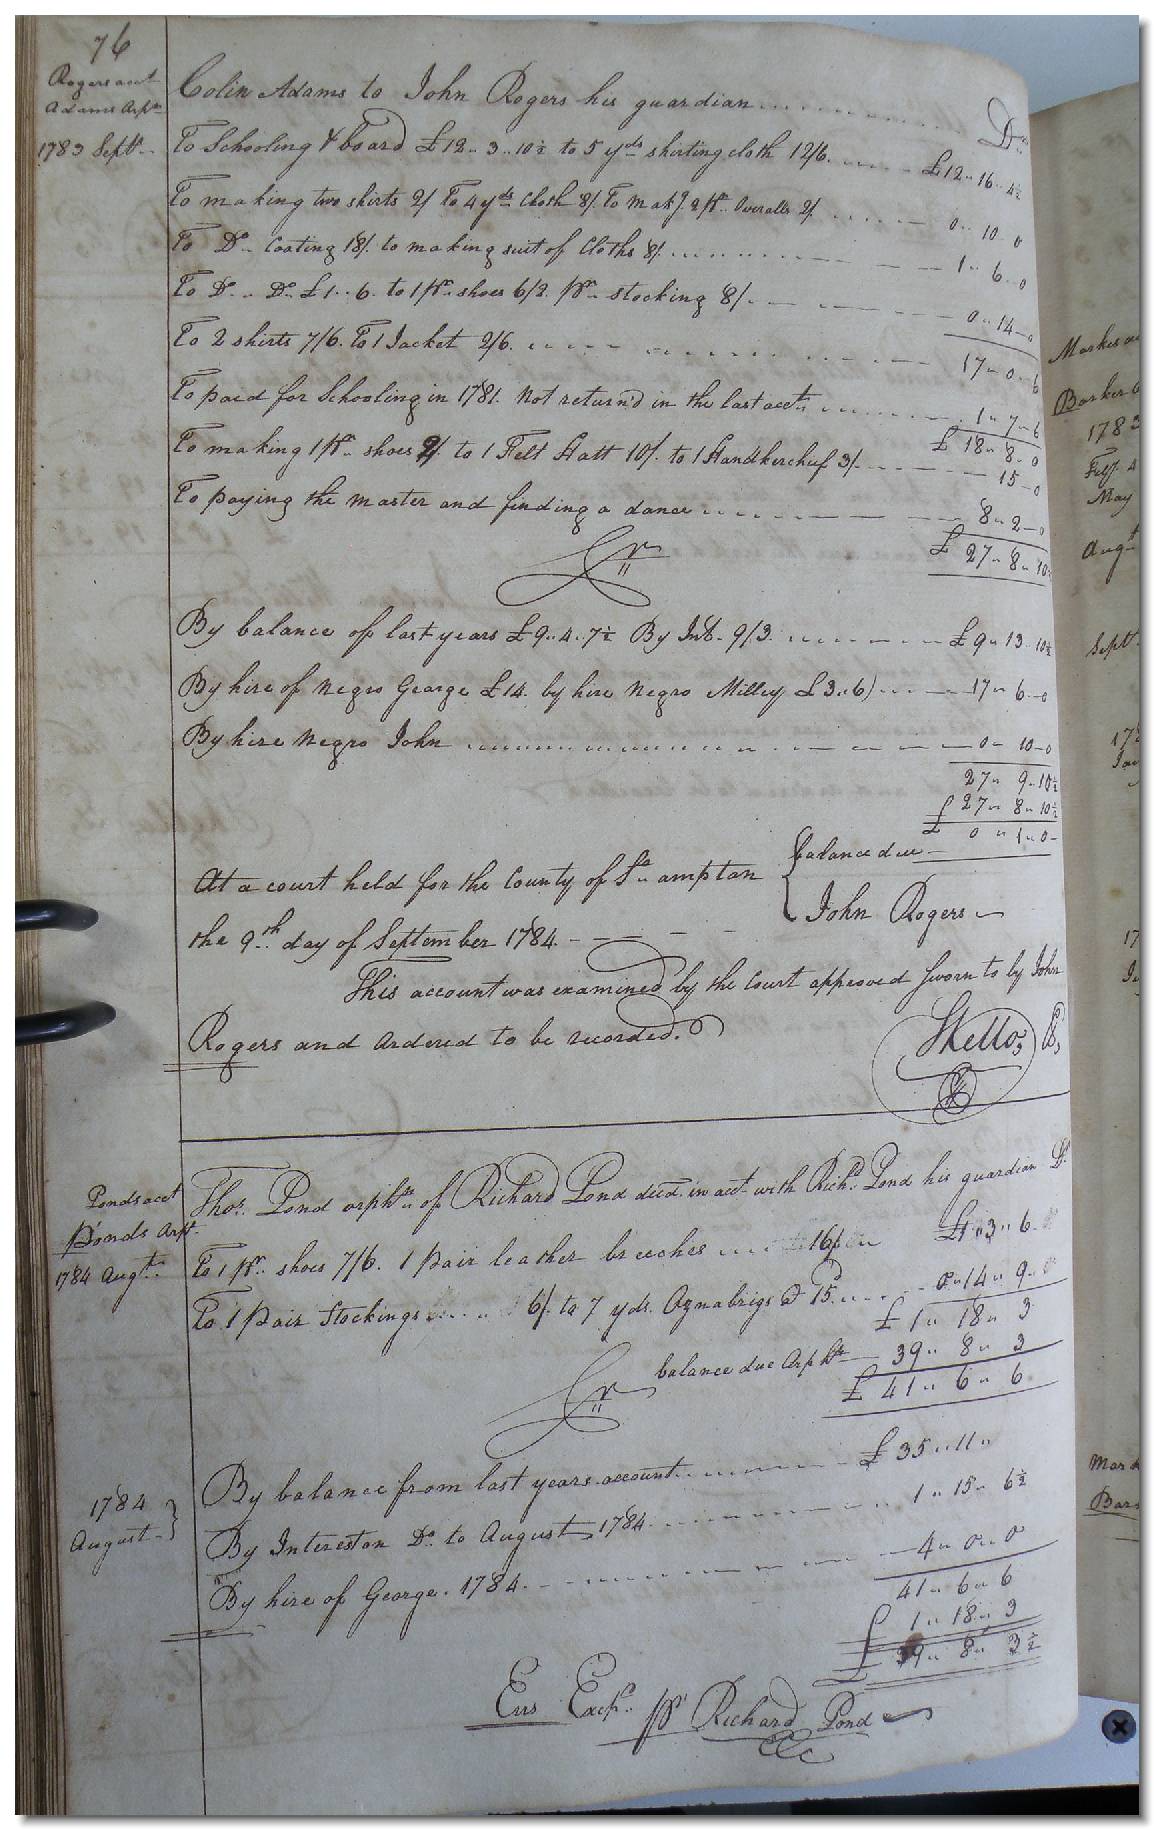 76
Rogers acct
Adams Orpn
1783 Septr
Colin Adams to John Rogers his guardian Dr
To Schooling & board £12..3..10½ to 5 yds shirting cloth 12/6. £12..16..4½
To making two shirts 2/ To 4 yds Cloth 8/. To Makg. 2 Pr. Overalls 2/. 0..10..0
To Do. Coating 18/. to making suit of Cloths 8/. 1..6..0
To Do. Do. £1..6. to 1 Pr. shoes 6/2. Pr. stocking 8/. 0..14..0
To 2 shirts 7/6. To 1 Jacket 2/6. 17..0..6
To paid for Schooling in 1781. Not return'd in the last acct. 1..7..6
£ 18..8..0
To making 1 Pr. shoes 2/. to 1 Felt Hatt 10/. to 1 Handkerchief 3/. 15..0
To paying the master and finding a dance 8..2..0
£ 27..8..10½
Cr
By balance of last years £9..4..7½ By Int. 9/3. £9..13..10½
By hire of Negro George £14. by hire Negro Milley £3..6) 17..6..0
By hire Negro John 0..10..0
27..9..10½
£ 27..8..10½
balance due £ 0..1..0
At a court held for the County of So. ampton
John Rogers
the 9th day of September 1784.
This account was examined by the Court approved Sworn to by John
Rogers and ordered to be recorded.
Ponds acct
Ponds Orpt.
1784 Augt.
Thos. Pond orphn. of Richard Pond decd. in acct. with Richd. Pond his guardian Dr.
To 1 Pr. shoes 7/6. 1 Pair leather breeches 16/ £1..3..6
To 1 Pair Stockings 6/. to 7 yds. Oznabrigs @ 15. 0..14..9
£ 1..18..3
balance due Orphn 39..8..3
£ 41..6..6
Cr
By balance from last years account £ 35..11..
1784
August
By Interest on Do. to August 1784. 1..15..6½
By hire of George. 1784. 4..0..0
41..6..6
£ 1..18..3
£ 39..8..3½
Errs Excepd. Pr Richard Pond
Markes
Barker
1783
May
Augt
Sept